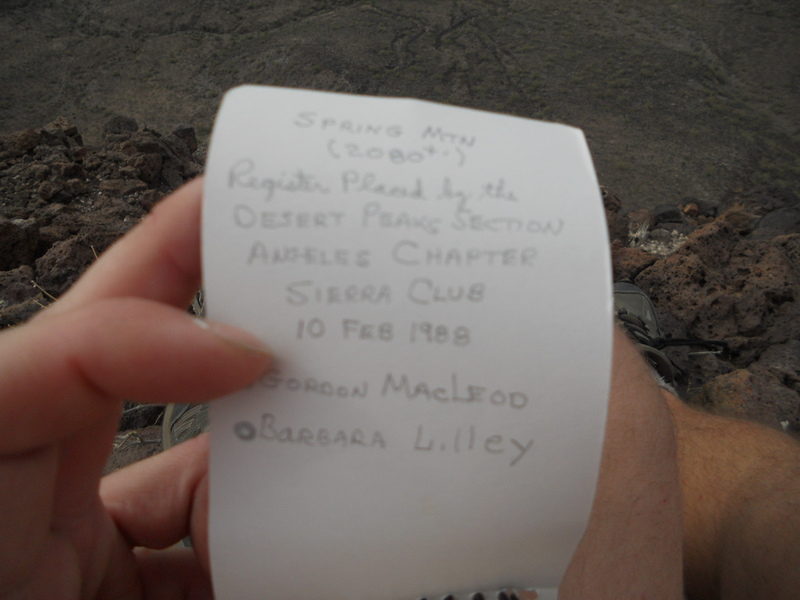 SPRING MTN
(2080+')
Register Placed by the
DESERT PEAKS SECTION
ANGELES CHAPTER
SIERRA CLUB
10 FEB 1988
GORDON MACLEOD
BARBARA LILLEY